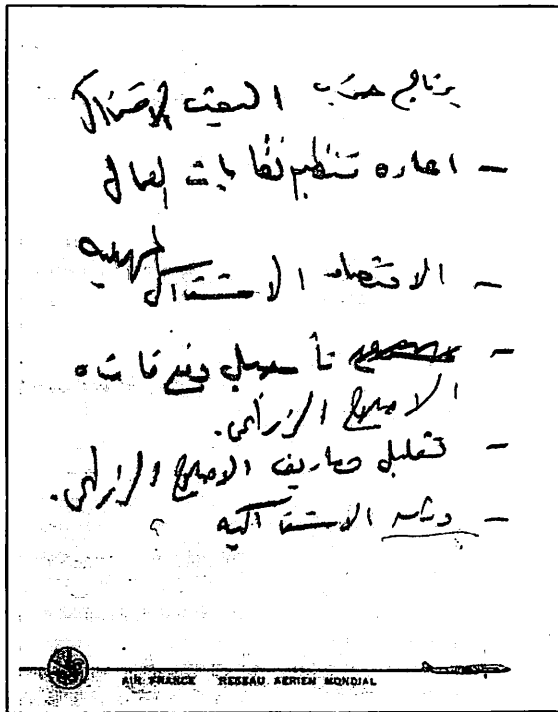 برنامج حزب البعث الاشتراكي
- اعادة تنظيم نقابات العمال
- الاقتصاد الاشتراكي
- تأجيل دفع
الاصلاح الزراعي.
- تقليل مصاريف الاصلاح الزراعي.
- دراسة الاشتراكية ؟
AIR FRANCE RESEAU AERIEN MONDIAL